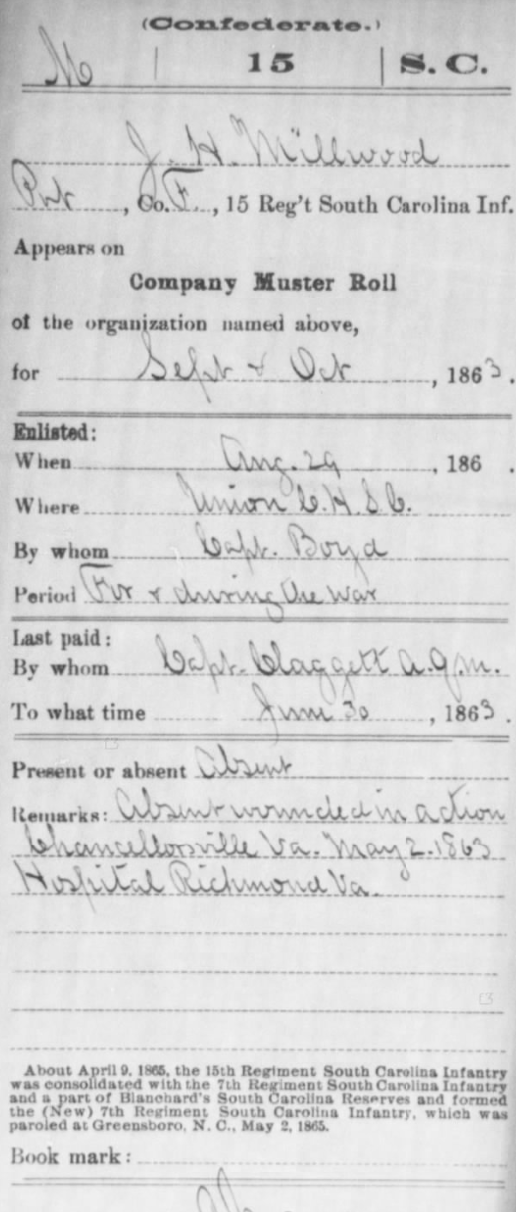 (Confederate.)
M | 15 | S. C.
J. H. Millwood
Pvt, Co. F., 15 Reg't South Carolina Inf.
Appears on
Company Muster Roll
of the organization named above,
for Sept & Oct, 1863.
Enlisted:
When Aug. 29, 186 .
Where Union C. H. S. C.
By whom Capt. Boyd
Period For & during the war
Last paid:
By whom Capt. Claggett A.Q.M.
To what time June 30, 1863.
Present or absent Absent
Remarks: Absent wounded in action
Chancellorsville Va. May 2. 1863
Hospital Richmond Va.
About April 9, 1865, the 15th Regiment South Carolina Infantry
was consolidated with the 7th Regiment South Carolina Infantry
and a part of Blanchard's South Carolina Reserves and formed
the (New) 7th Regiment South Carolina Infantry, which was
paroled at Greensboro, N. C., May 2, 1865.
Book mark: